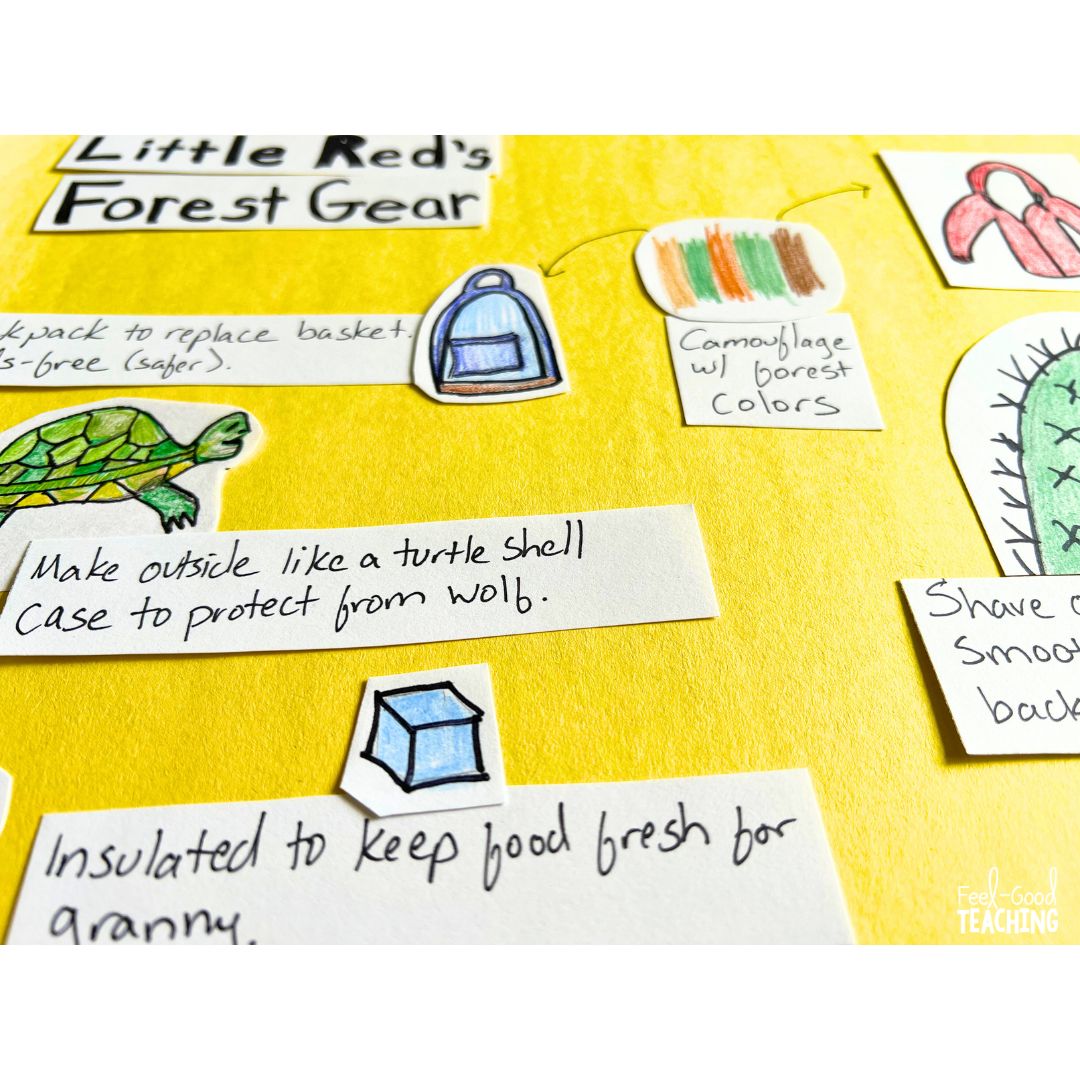 Little Red's
Forest Gear
to replace basket.
(safer).
Camouflage
w/ forest
colors
Make outside like a turtle shell
case to protect from wolf.
Share
Smoot
back
Insulated to keep food fresh for
granny.
Feel-Good
TEACHING